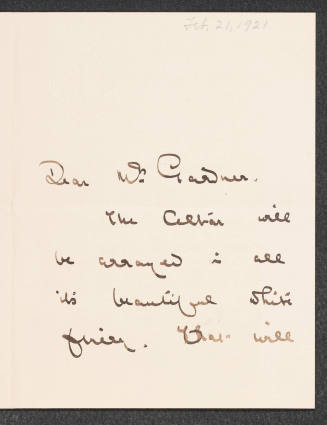 Feb. 21, 1921
Dear Mrs Gardner.
The Celtár will
be arrayed in all
its beautiful white
finery. That will